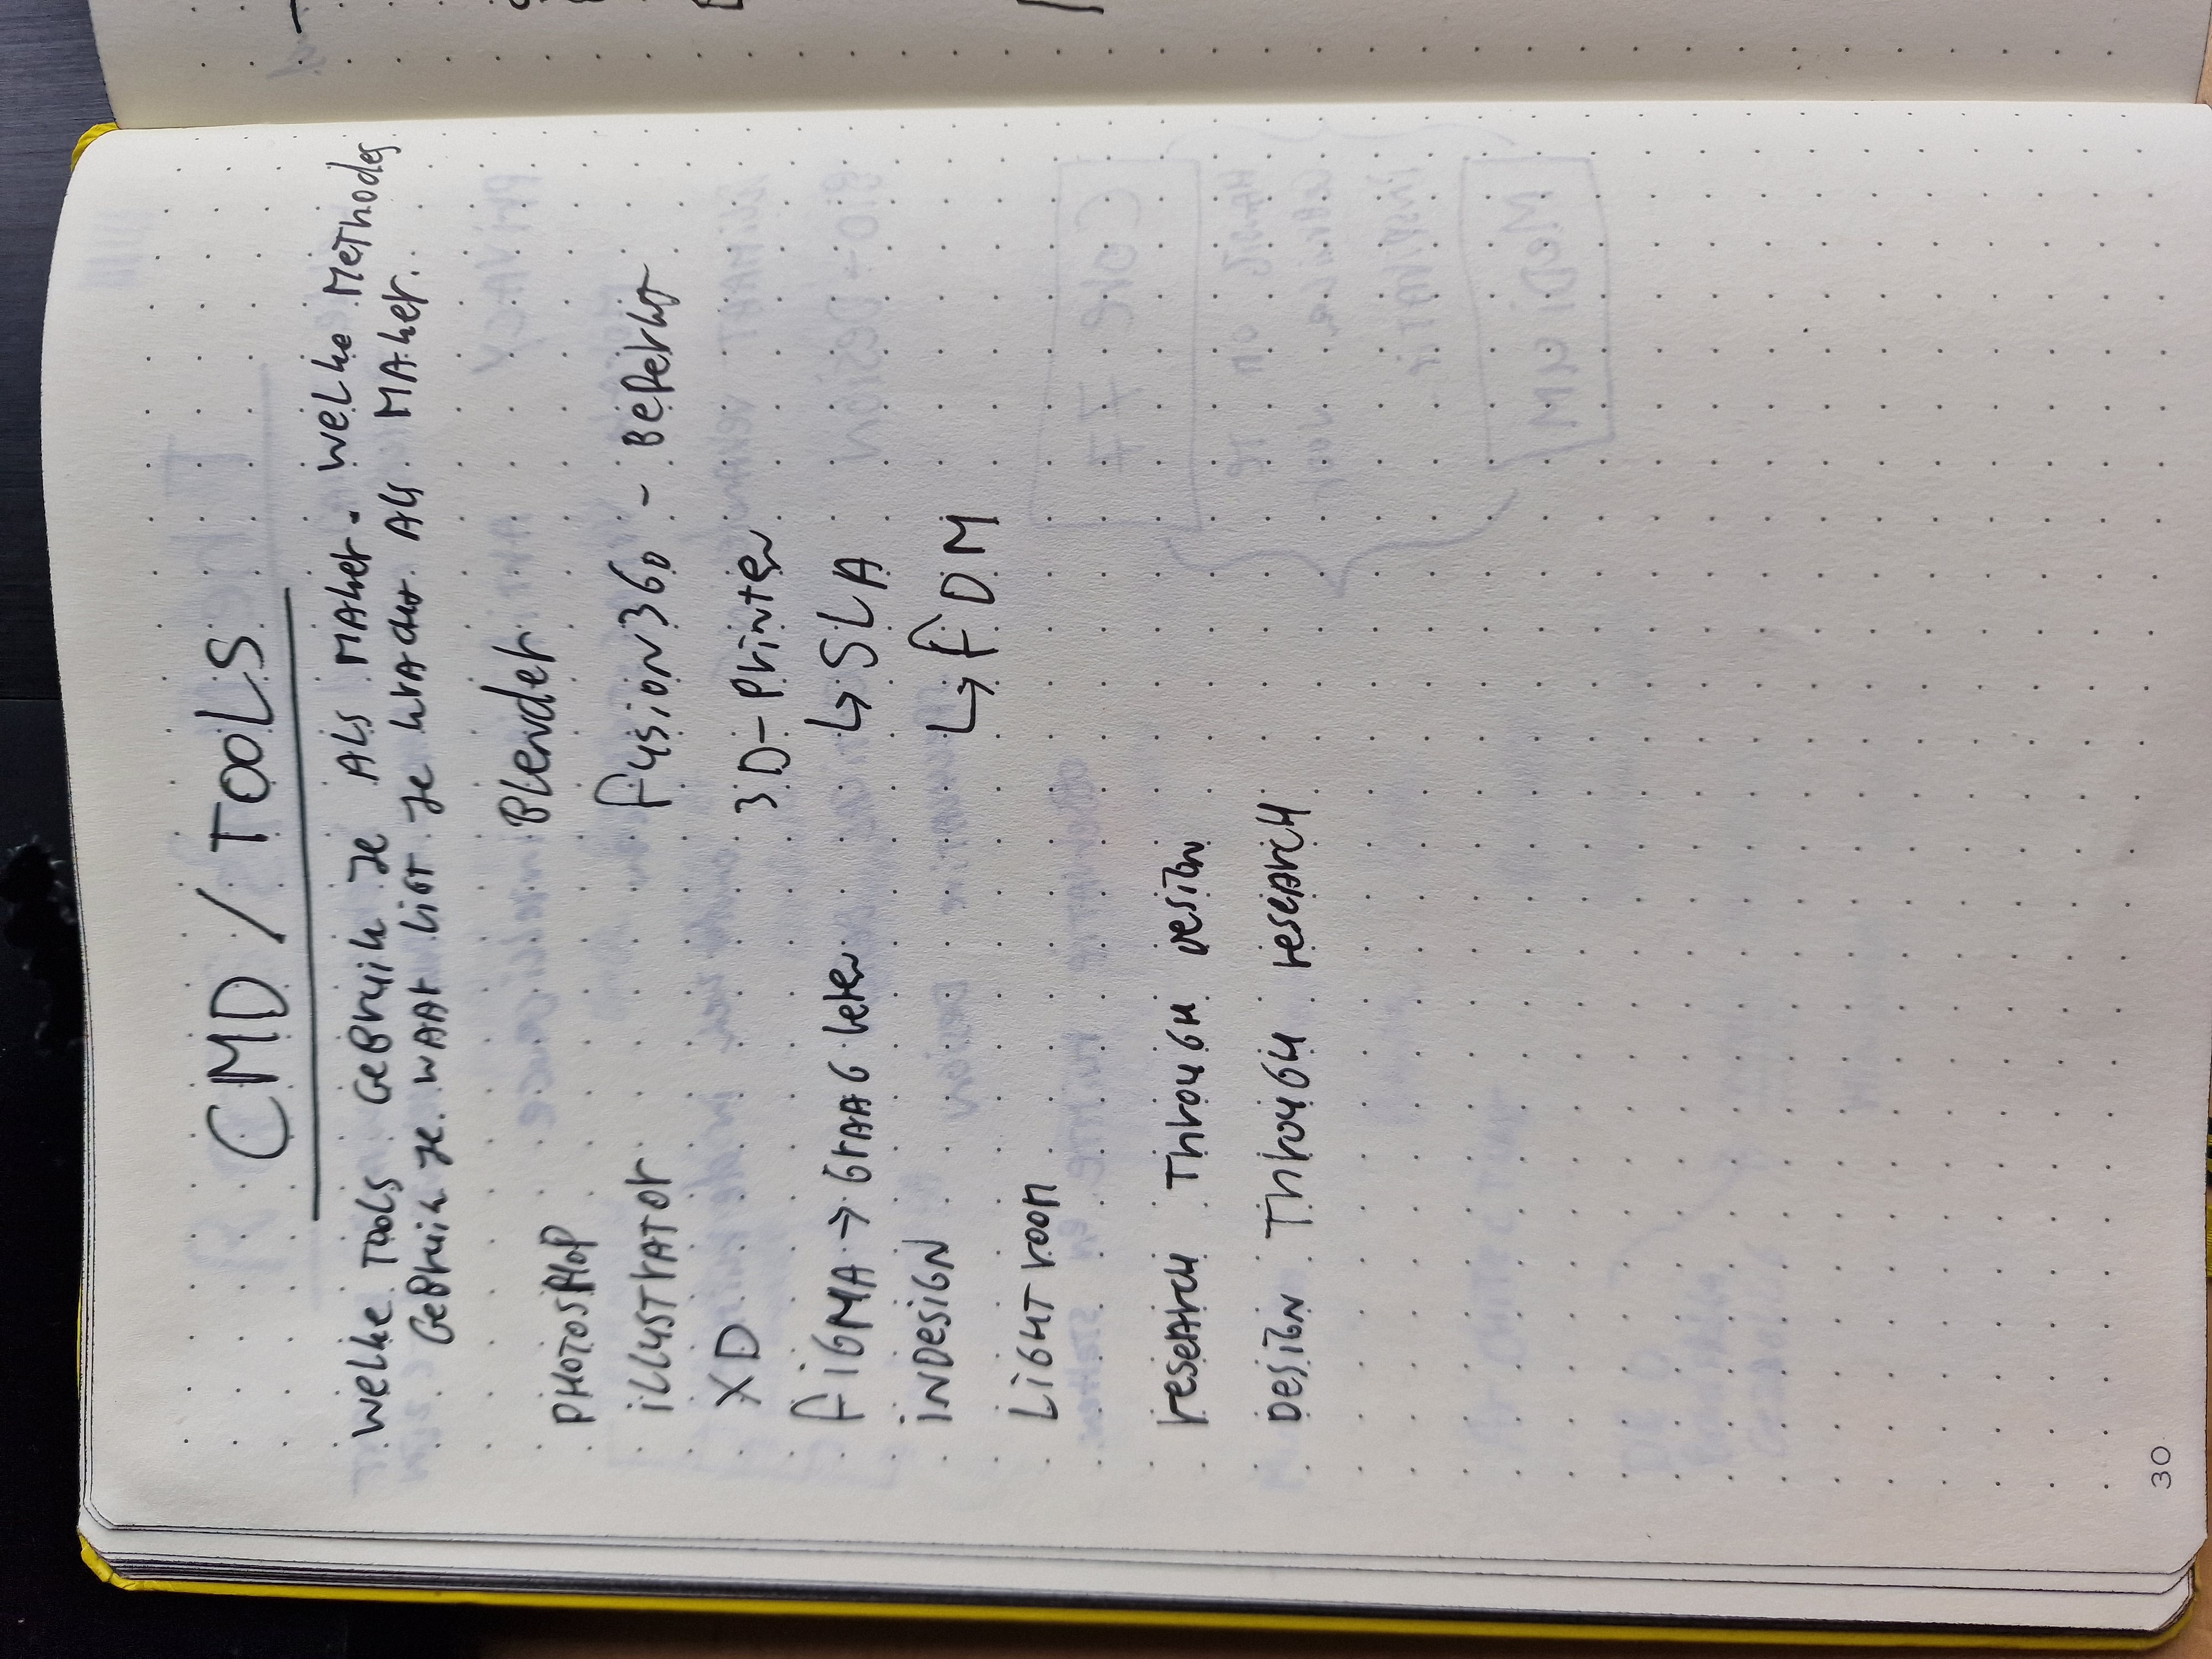 CMD / TOOLS
Welke Tools Gebruik je ALS MAKer. Welke Methodes
Gebruik je. WAAr LiGT je kracht ALS MAker.
PHOTOSHOP
iLLUSTrATOr
XD
FiGMA → GrAAG leren
iNDesiGN
LiGHTrooM
Blender
Fusion360 - Beperkt
3D-Printen
↳ SLA
↳ FDM
research Through Design
Design Through research
30